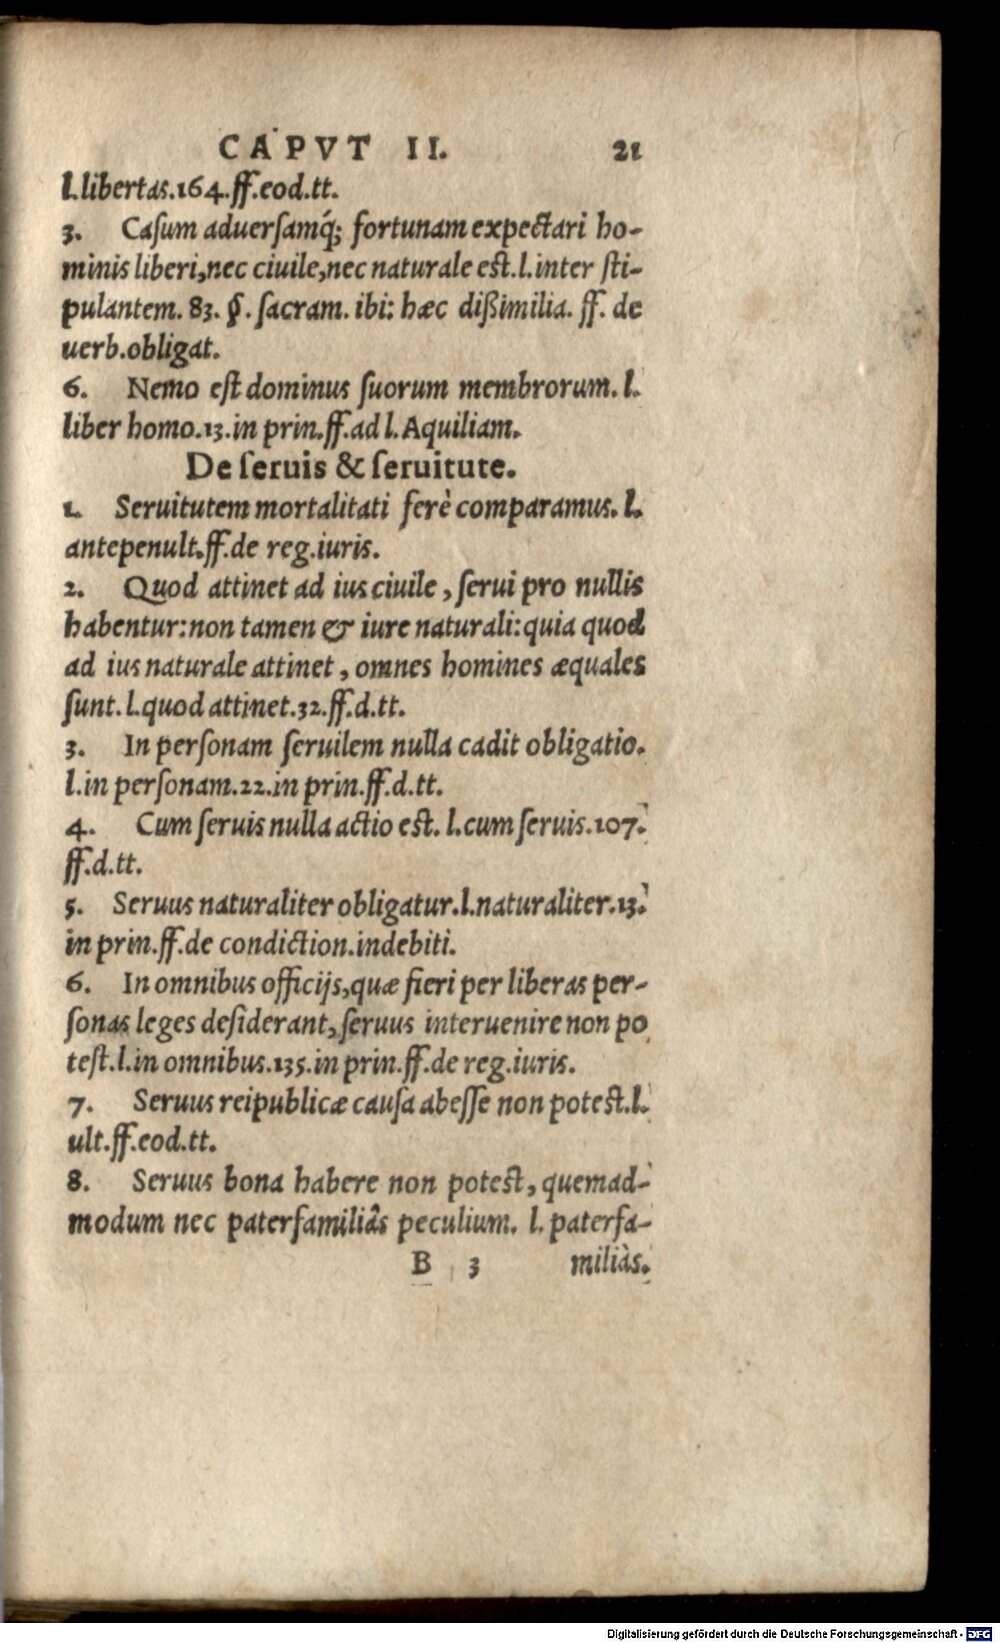 CAPVT II. 21
l.libertas.164.ff.eod.tt.
3. Caſum aduerſamq́; fortunam expectari ho-
minis liberi,nec ciuile,nec naturale est.l.inter ſti-
pulantem. 83. §. ſacram. ibi: hæc dißimilia. ff. de
uerb.obligat.
6. Nemo eſt dominus ſuorum membrorum. l.
liber homo.13.in prin.ff.ad l.Aquiliam.
De ſeruis & ſeruitute.
1. Seruitutem mortalitati ferè comparamus. l.
antepenult.ff.de reg.iuris.
2. Quod attinet ad ius ciuile, ſerui pro nullis
habentur:non tamen & iure naturali:quia quod
ad ius naturale attinet, omnes homines æquales
ſunt. l.quod attinet.32.ff.d.tt.
3. In perſonam ſeruilem nulla cadit obligatio.
l.in perſonam.22.in prin.ff.d.tt.
4. Cum ſeruis nulla actio est. l.cum ſeruis.107.
ff.d.tt.
5. Seruus naturaliter obligatur.l.naturaliter.13.
in prin.ff.de condiction.indebiti.
6. In omnibus officijs,quæ fieri per liberas per-
ſonas leges deſiderant,ſeruus interuenire non po
teſt.l.in omnibus.135.in prin.ff.de reg.iuris.
7. Seruus reipublicæ cauſa abeſſe non potest.l.
ult.ff.eod.tt.
8. Seruus bona habere non potest, quemad-
modum nec paterfamiliâs peculium. l. paterfa-
B 3 miliàs.
Digitalisierung gefördert durch die Deutsche Forschungsgemeinschaft - DFG